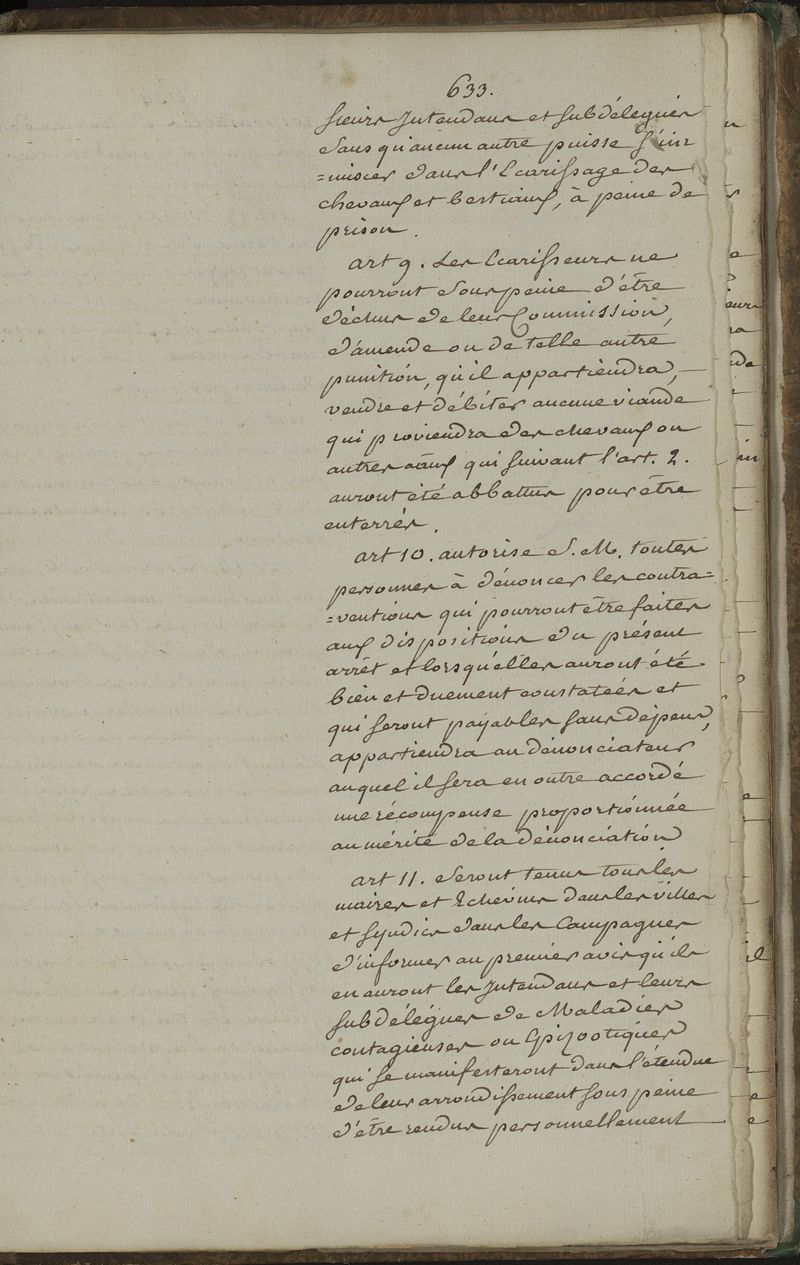 633.
sieurs Intendans et subdélegués
sans qu'aucun autre puisse s'im
=miscer dans l'Ecarissage des
chevaux et bestiaux, à peine de
prison.
art 9. Les Ecarisseurs ne
pourront sous peine d'être
déchus de leur Commission,
d'amende ou de telle autre
punition, qu'il appartiendra, —
vendre et débiter aucune viande
qui proviendra des chevaux ou
autres aāux qui suivant l'art. 2.
auront été abbattus pour être
enterrés.
art 10. autorise S. M. toutes
personnes à dénoncer les contra=
=ventions qui pourront être faites
aux dispositions du présent
arrêt et lorsqu'elles auront été
bien et duement constatées et
qui seront payables sans dépens,
appartiendra au dénonciateur
auquel il sera en outre accordé
une récompense proportionnée
au mérite de la dénonciation
art 11. Seront tenus tous les
maires et Echevins dans les villes
et syndics dans les Campagnes
d'informer au premier avis qu'ils
en auront les Intendans et leurs
subdélégués de Maladies
contagieuses ou Epizootiques
qui se manifesteront dans l'étendue
de leur arrondissement sous peine
d'être rendus personnellement